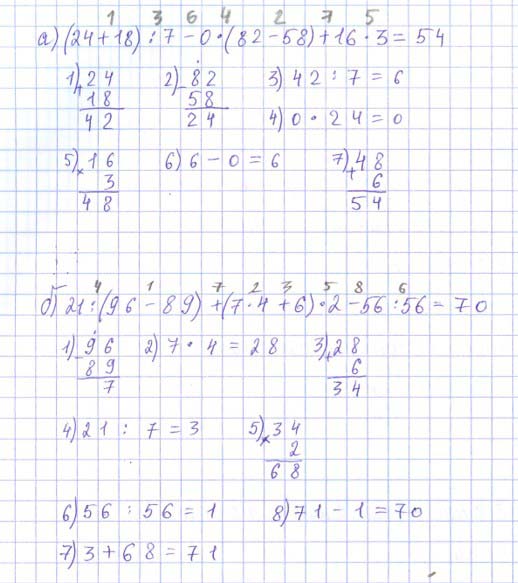 1 3 6 4 2 7 5
а) (24+18) : 7 - 0 · (82 - 58) + 16 · 3 = 54
1) 24 2) 82 3) 42 : 7 = 6
+ 18 - 58 4) 0 · 24 = 0
42 24
5) 16 6) 6 - 0 = 6 7) 48
× 3 + 6
48 54
4 1 7 2 3 5 8 6
б) 21 : (96 - 89) + (7 · 4 + 6) · 2 - 56 : 56 = 70
1) 96 2) 7 · 4 = 28 3) 28
- 89 + 6
7 34
4) 21 : 7 = 3 5) 34
× 2
68
6) 56 : 56 = 1 8) 71 - 1 = 70
7) 3 + 68 = 71